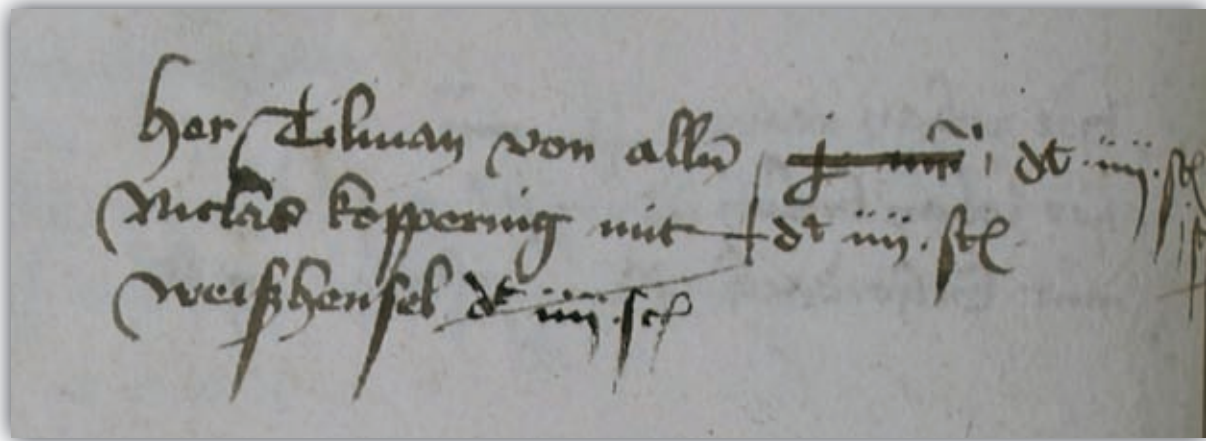 her Tilman von allñ j mrͬ dt iiij sc
Niclas koppernig mit dt iiij sc
weiszhensel dt iiij sc